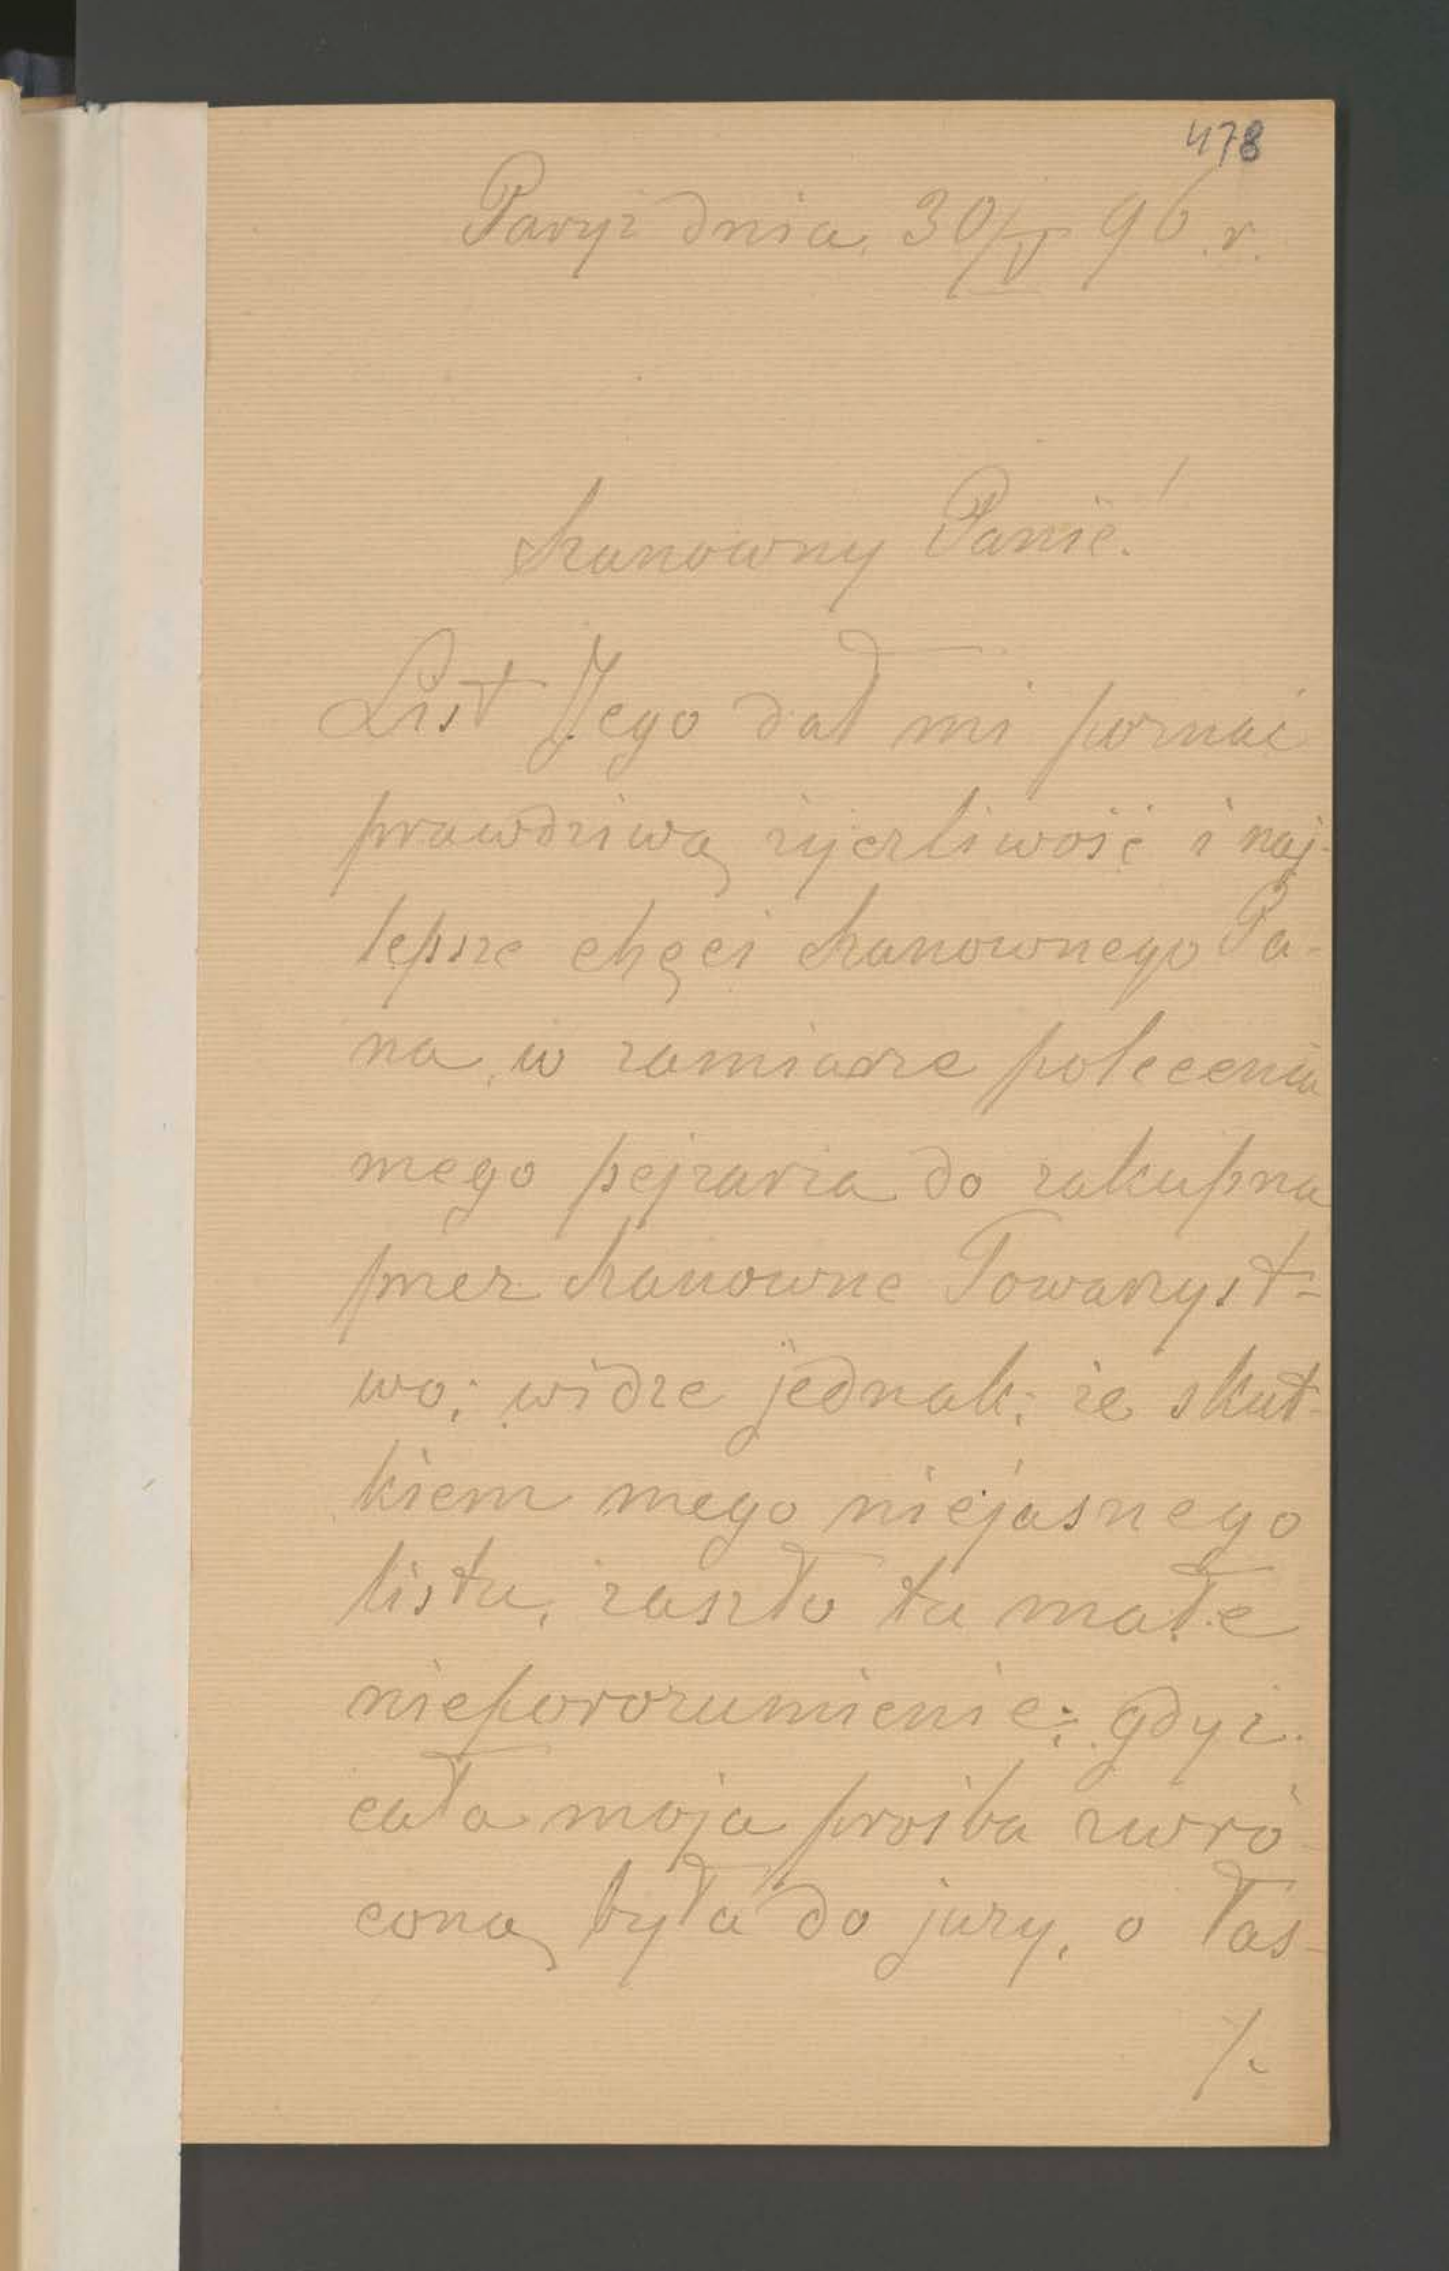 478
Paryż dnia, 30/V 96 r.
Szanowny Panie!
List Jego dał mi poznać
prawdziwą życzliwość i naj-
lepsze chęci Szanownego Pa-
na, w zamiarze polecenia
mego pejzaża do zakupna
przez Szanowne Towarzyst-
wo; widzę jednak; że skut-
kiem mego niejasnego
listu, zaszło tu małe
nieporozumienie; gdyż
cała moja prośba zwró-
coną była do jury, o łas-
/.